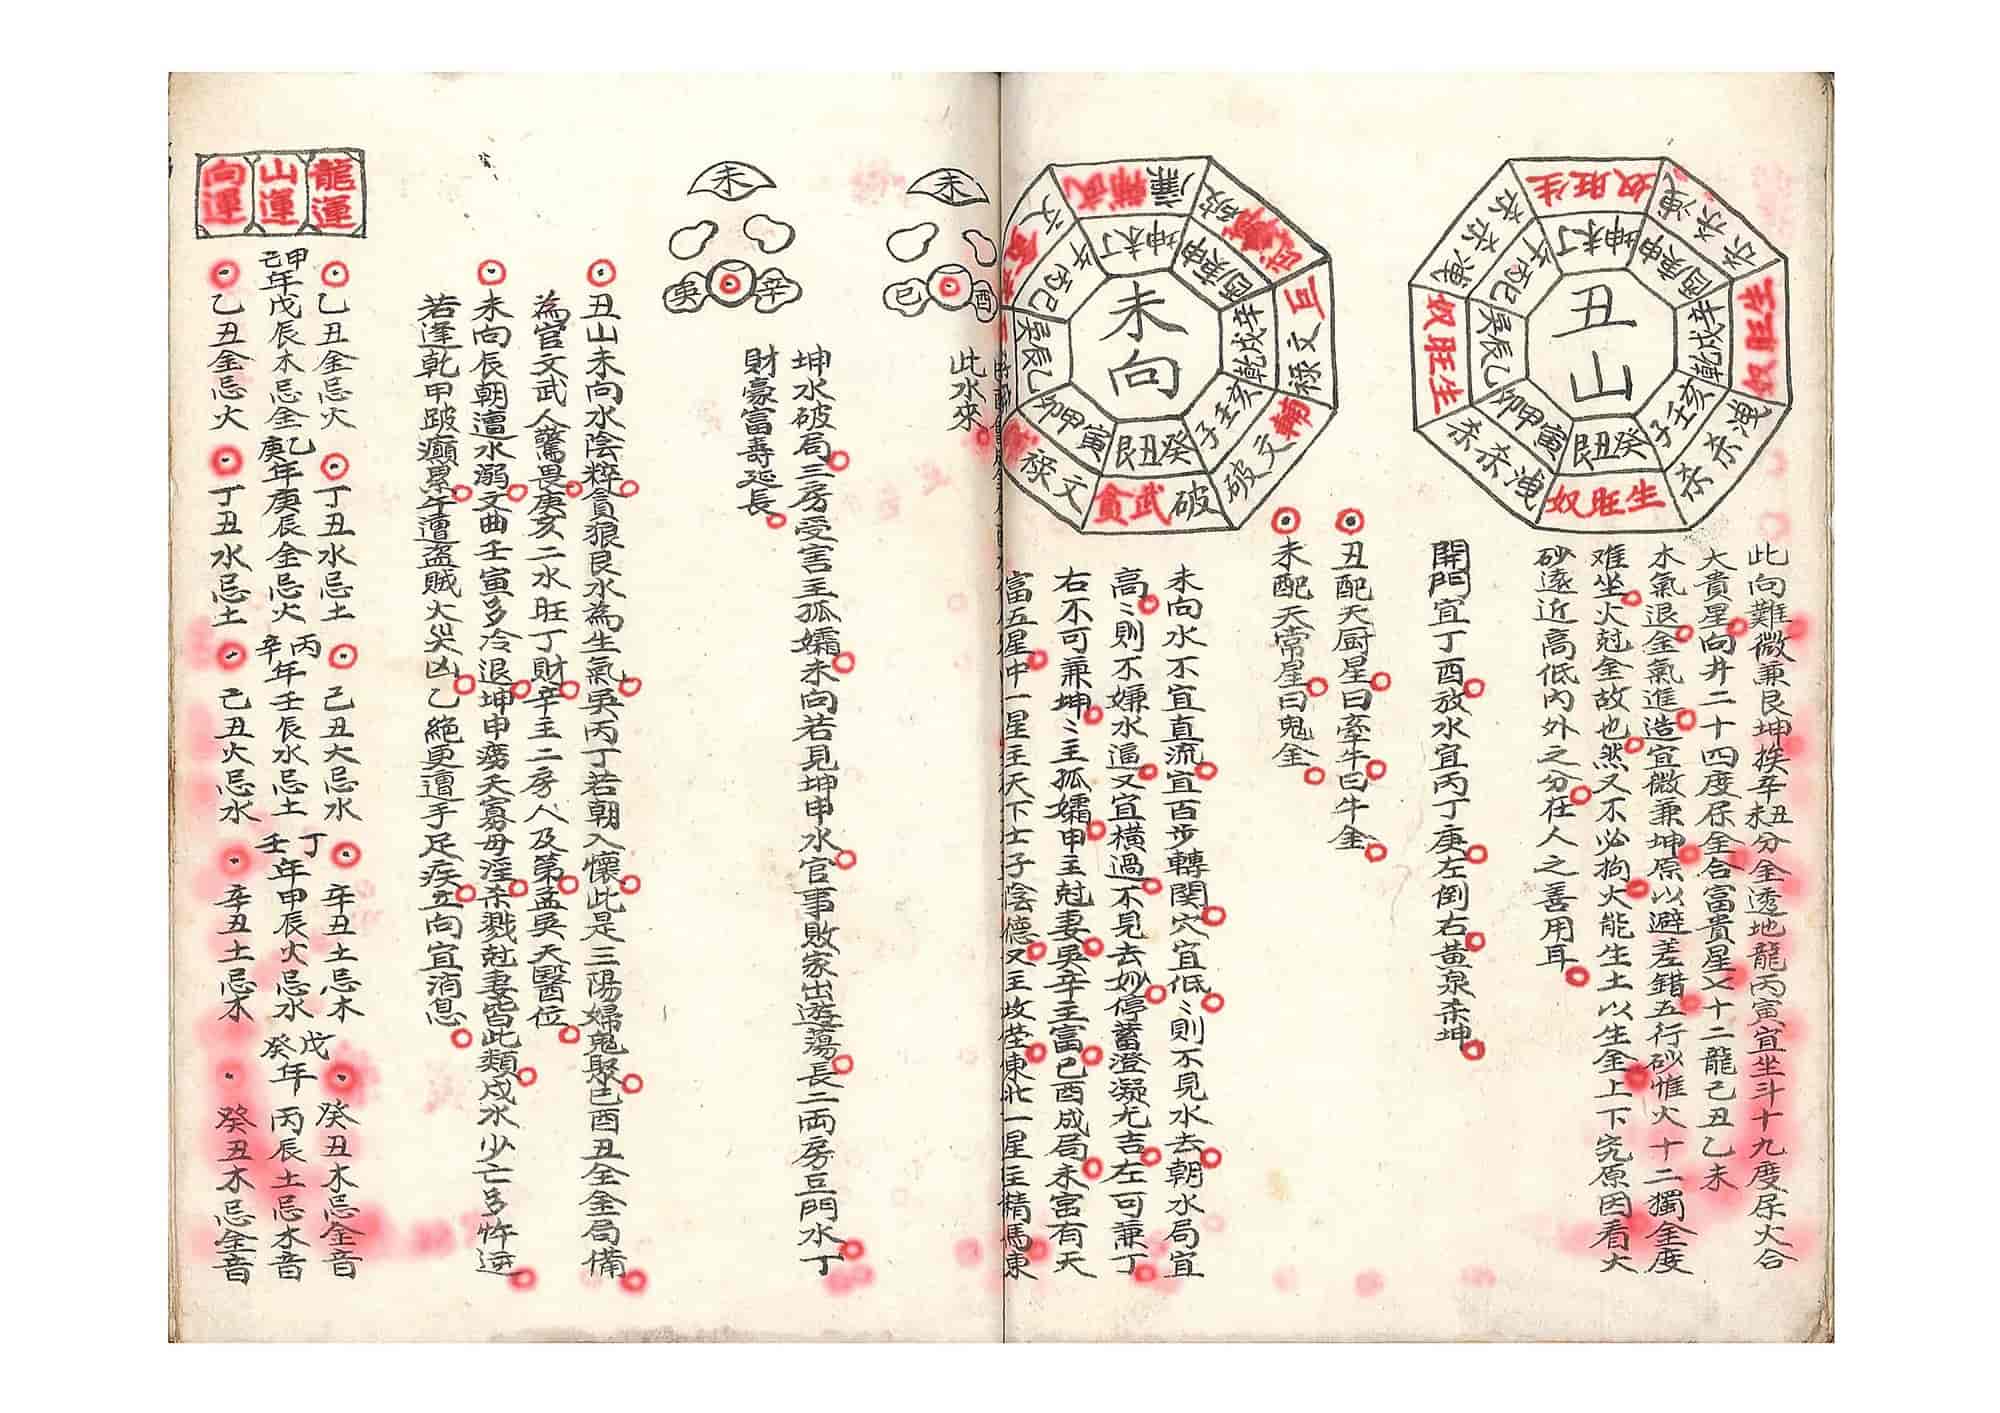 丑山
丁未坤
申庚酉
辛戌乾
亥壬子
癸丑艮
寅甲卯
乙辰巽
巳丙午
奴旺生
洩杀杀
奴旺生
洩杀杀
生旺奴
洩杀杀
奴旺生
洩杀杀
此向難微兼艮坤挨辛丑辛未分金透地龍丙寅宜坐斗十九度尿火合
大貴星向井二十四度尿金合富貴星七十二龍己丑乙未
木氣退金氣進造宜微兼坤原以避差錯五行砂惟火十二獨金度
难坐火尅金故也然又不必拘火能生土以生金上下究原因看大
砂遠近高低內外之分在人之善用耳
開門宜丁酉放水宜丙丁庚左倒右黃泉杀坤
丑配天厨星曰牽牛曰牛金
未配天常星曰鬼金
未向
丁未坤
申庚酉
辛戌乾
亥壬子
癸丑艮
寅甲卯
乙辰巽
巳丙午
武輔廉
巨文禄
輔文破
破武貪
文禄
未向水不宜直流宜百步轉関穴宜低〻則不見水去朝水局宜
高〻則不嫌水逼又宜橫過不見去妙停蓄澄凝尤吉左可兼丁
右不可兼坤〻主孤孀申主尅妻巽辛主富巳酉成局未富有天
富五星中一星主天下士子陰德又主坟茔東北一星主精馬東
未
巳
酉
此水來
未
巽
辛
坤水破局三房受害主孤孀未向若見坤申水官事敗家出遊蕩長二両房巨門水丁
財豪富壽延長
丑山未向水陰粹貪狼艮水為生氣巽丙丁若朝入懷此是三陽婦鬼聚巳酉丑全金局備
為官文武人驚畏庚亥二水旺丁財辛主二房人及第孟巽天醫位
未向辰朝遭水溺文曲壬寅多冷退坤申癆夭寡母淫杀戮尅妻皆此類戌水少亡多忤逆
若逢乾甲跛癲累年遭盜賊火災凶乙絕更遭手足疾立向宜消息
龍運
山運
向運
乙丑金忌火
丁丑水忌土
己丑火忌水
辛丑土忌木
癸丑木忌金音
甲己年戊辰木忌金
乙庚年庚辰金忌火
丙辛年壬辰水忌土
丁壬年甲辰火忌水
戊癸年丙辰土忌木音
乙丑金忌火
丁丑水忌土
己丑火忌水
辛丑土忌木
癸丑木忌金音